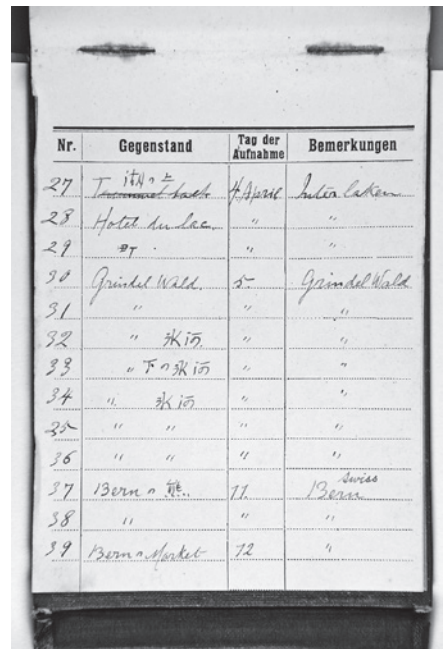 Nr. Gegenstand Tag der Aufnahme Bemerkungen
27 湖の上 4 April Interlaken
28 Hotel du lac. " "
29 町 . " "
30 Grindel Wald. 5 Grindel Wald
31 " " "
32 " 氷河 " "
33 " 下の氷河 " "
34 " 氷河 " "
35 " " " "
36 " " " "
37 Bern の 熊.. 11. Bern Swiss
38 " " "
39 Bern の Market 12 "